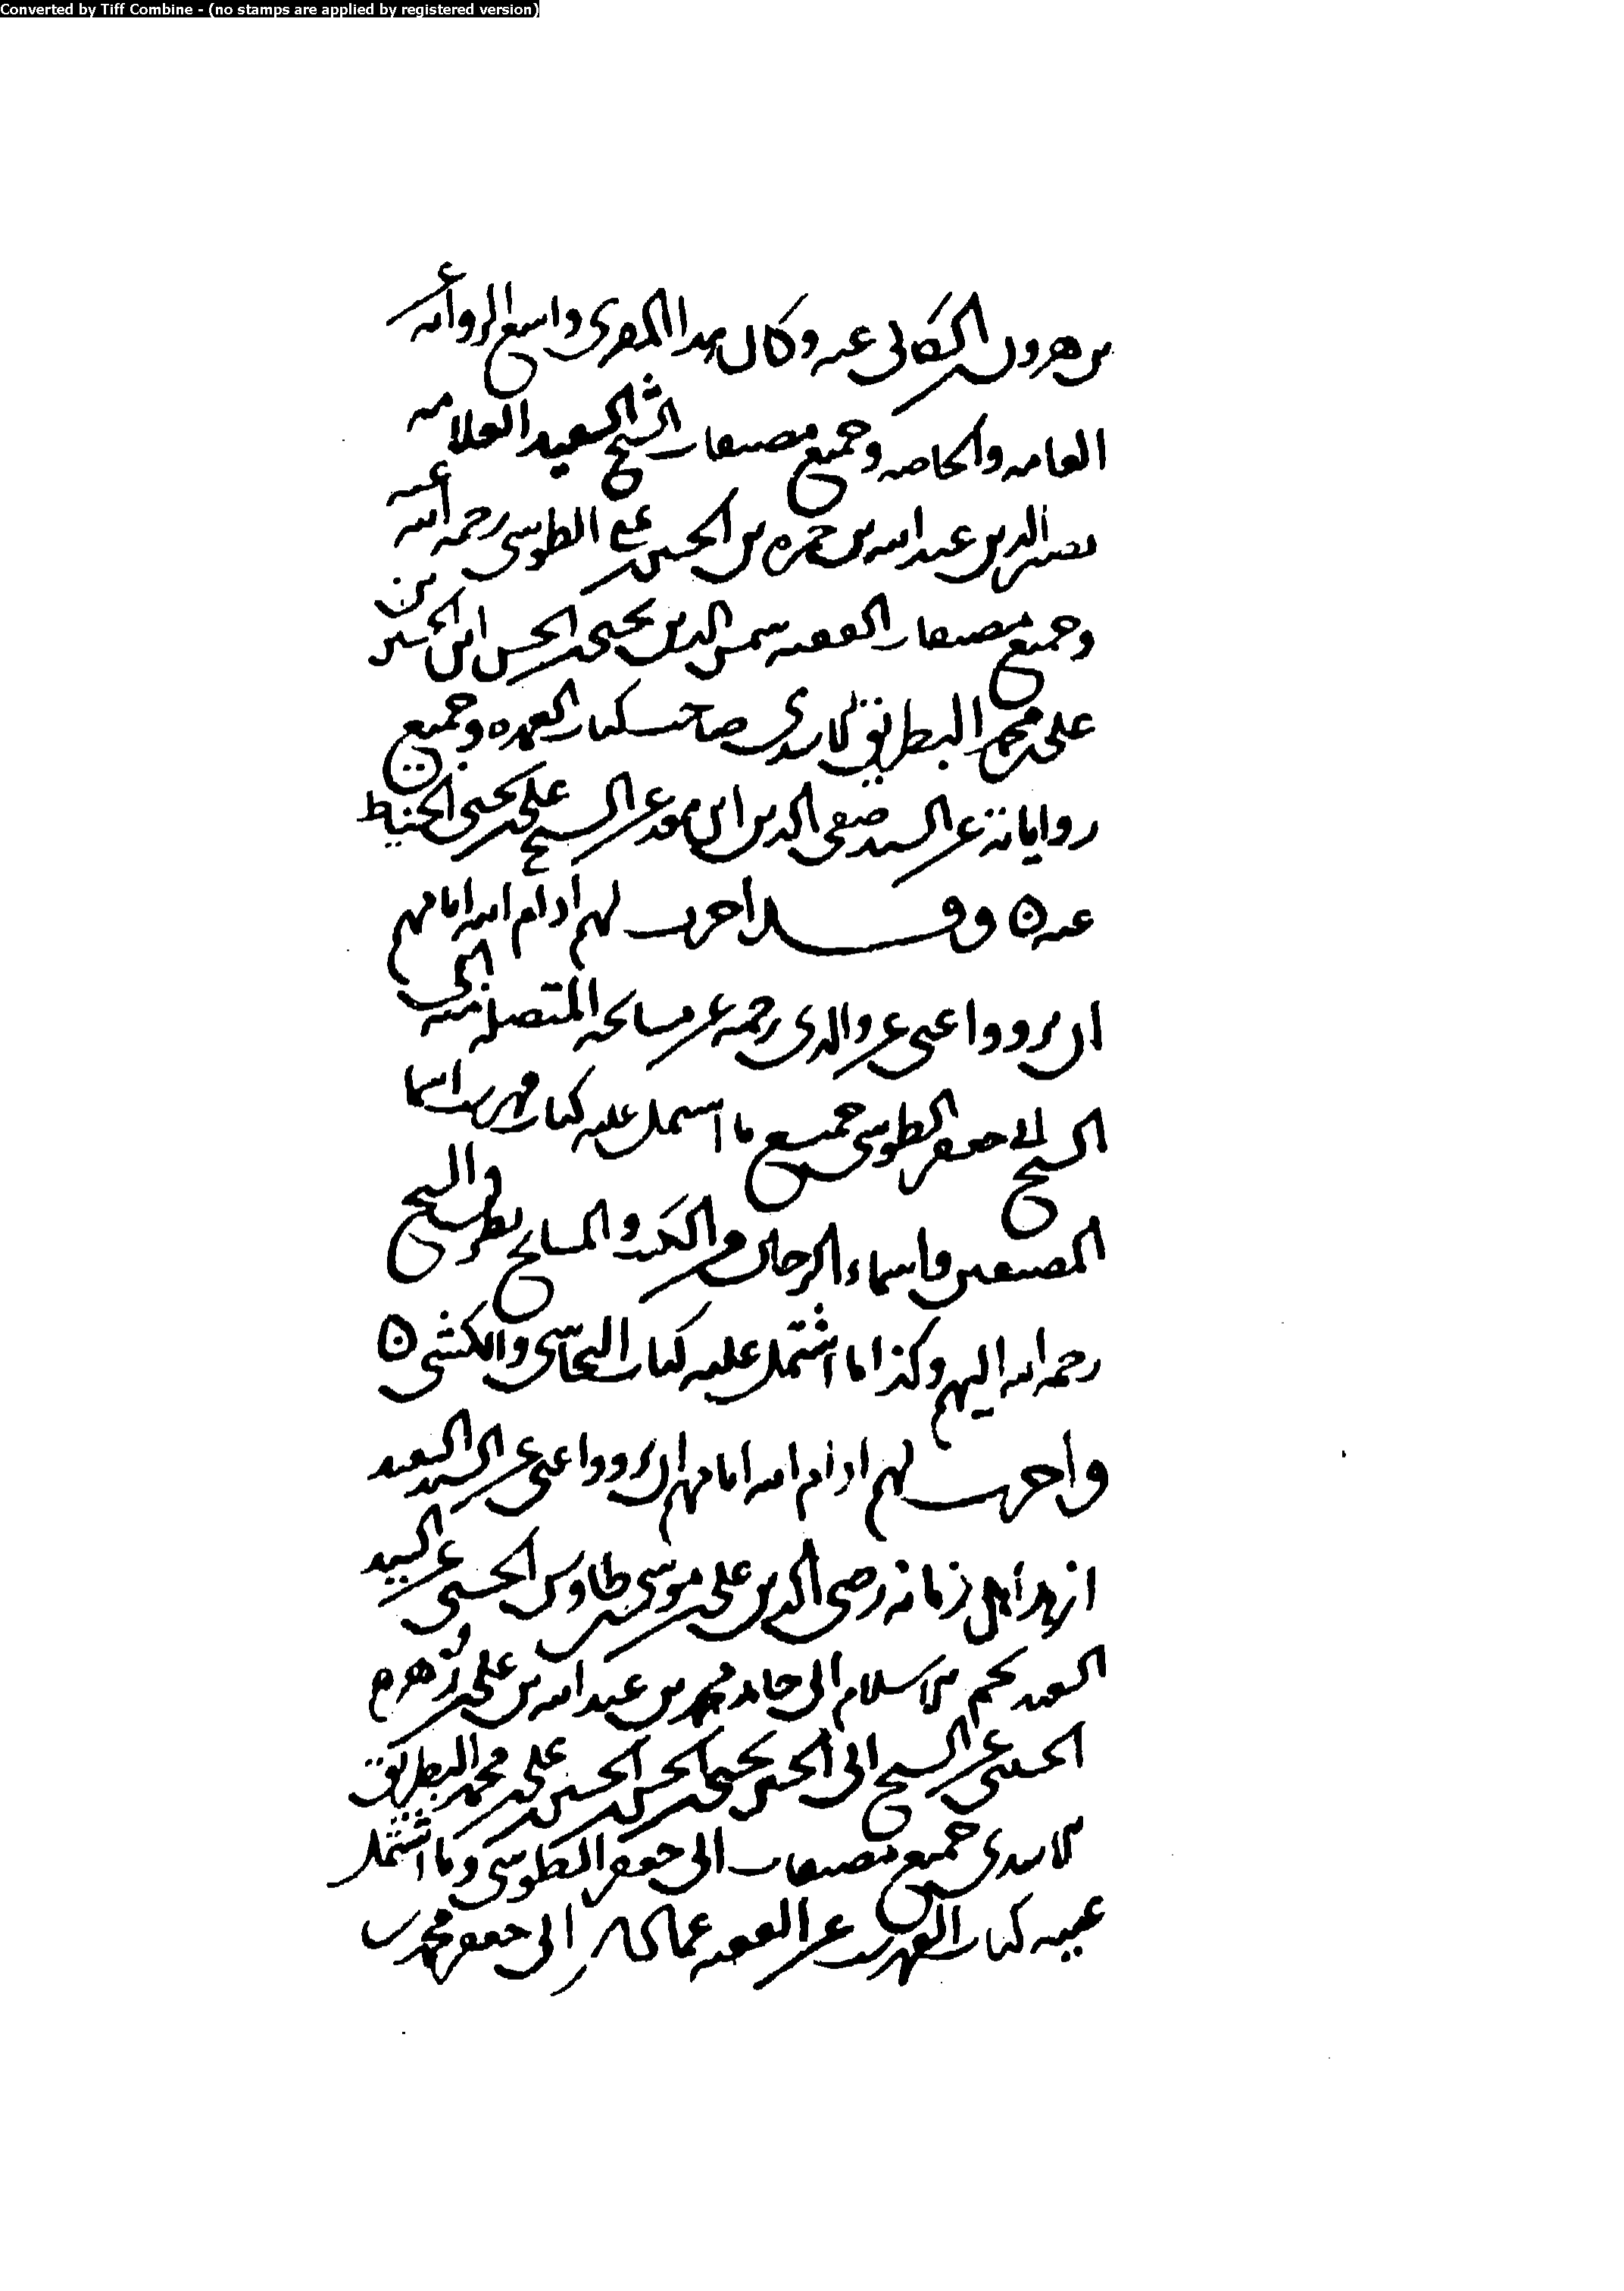 Converted by Tiff Combine - (no stamps are applied by registered version)
بن هرون الكتاني عنه وكان هذا المقرى واسع الرواية عن
العامه والخاصه وجميع مصنفات الشيخ السعيد العلامه
نصير الدين عبد الله بن حمزه بن الحسن بن علي الطوسي رحمه الله عنه
وجميع مصنفات الفقيه شمس الدين يحيى بن الحسن ابن الحسين بن
على بن محمد البطريق الاسدي صاحب كتاب العمده وجميع
رواياته عن السيد صفي الدين ابن معد عن الشيخ على بن يحيى الخياط
عنه ن وقد اجزت لهم ادام الله ايامهم
ان يرووا عنى عن والدى رحمه عن مشايخه المتصله منه الى
الشيخ ابي جعفر الطوسي جميع ما اشتمل عليه كتاب فهرست اسما
المصنفين واسماء الرجال من الكتب والمشايخ بطرق الشيخ
رحمه الله اليهم وكذا ما اشتمل عليه كتاب النجاشي والكشى ن
واجزت لهم ادام الله ايامهم ان يرووا عنى عن السيد السعيد
ازهد اهل زمانه رضي الدين على بن موسى بن طاوس الحسنى عن السيد
السعيد محيي الاسلام ابى حامد محمد بن عبد الله بن على بن زهره
الحسينى عن الشيخ ابى الحسين يحيى بن الحسن بن الحسين بن على بن محمد البطريق
الاسدى جميع مصنفات ابى جعفر الطوسي وما اشتمل
عليه كتاب الفهرست عن الفقيه عماد الدين ابى جعفر محمد بن